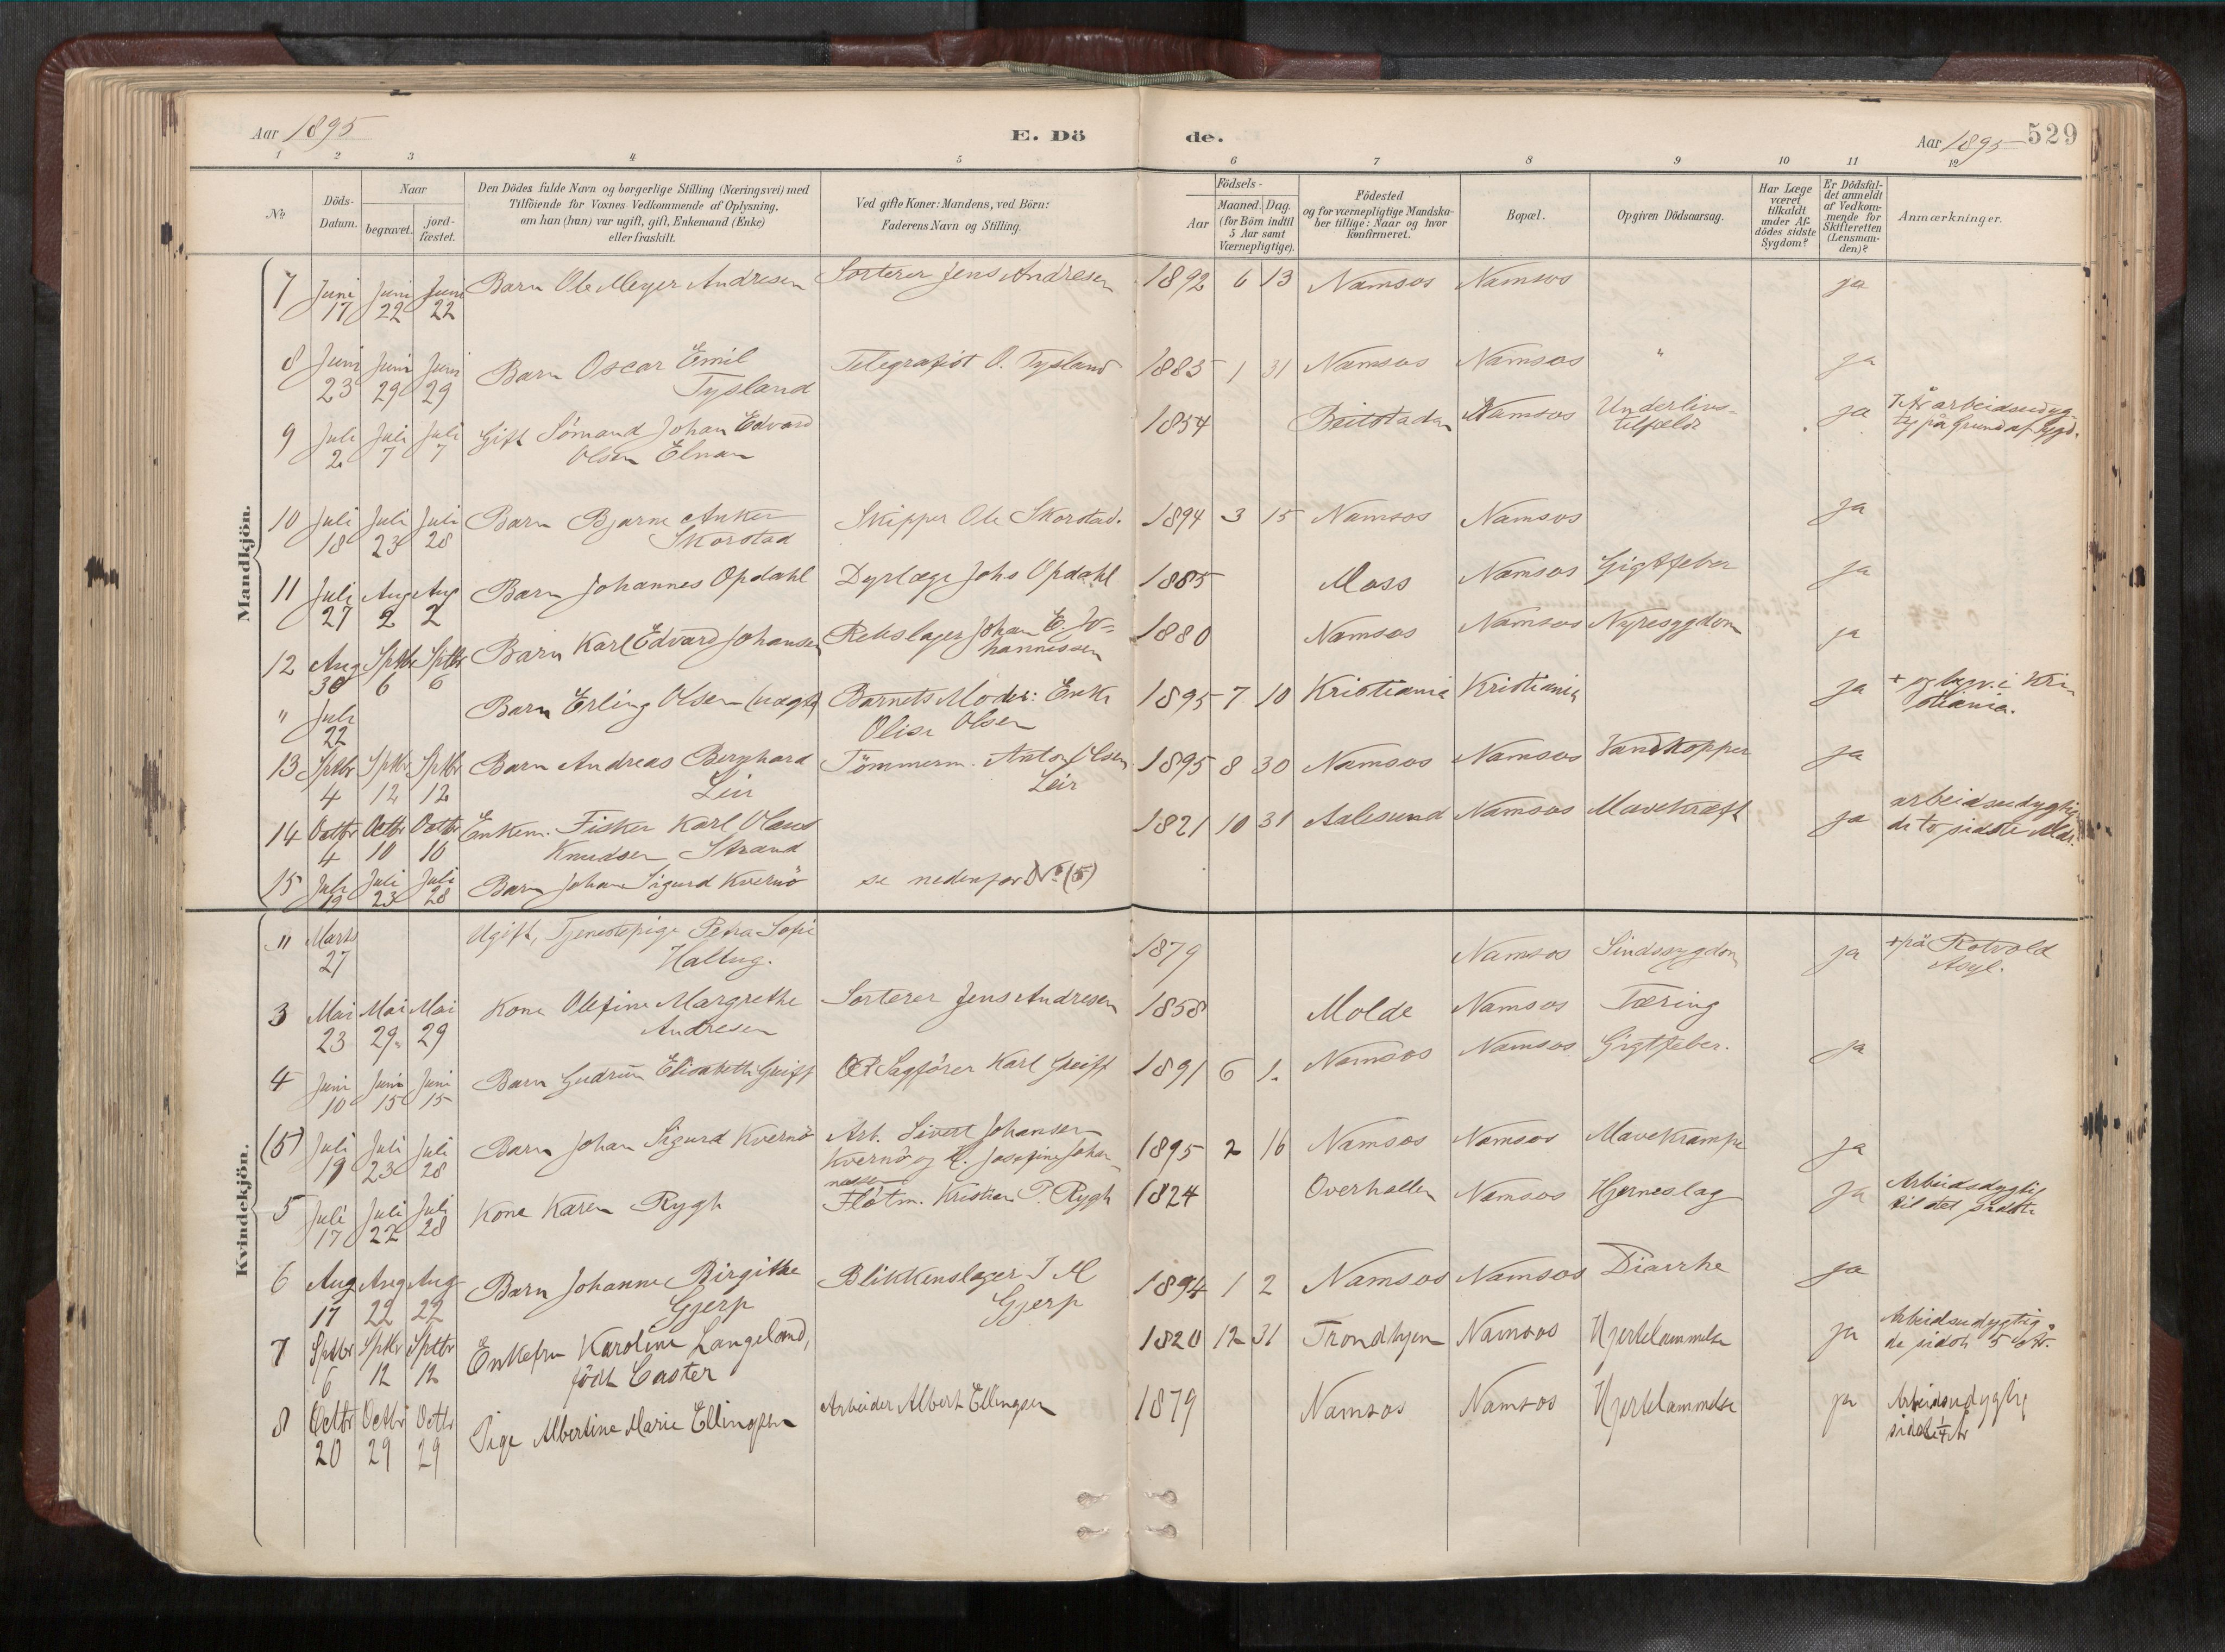 Aar 1895
E. Dö
de.
Aar 1895
529
1 2 3 4 5 6 7 8 9 10 11 12
№
Döds-
Datum.
Naar
begravet.
jord-
fæstet.
Den Dödes fulde Navn og borgerlige Stilling (Næringsvei) med
Tilföiende for Voxnes Vedkommende af Oplysning,
om han (hun) var ugift, gift, Enkemand (Enke)
eller fraskilt.
Ved gifte Koner: Mandens, ved Börn:
Faderens Navn og Stilling.
Födsels-
Aar
Maaned. Dag.
(for Börn indtil
5 Aar samt
Værnepligtige).
Födested
og for værnepligtige Mandska-
ber tillige: Naar og hvor
konfirmeret.
Bopæl.
Opgiven Dödsaarsag.
Har Læge
været
tilkaldt
under Af-
dödes sidste
Sygdom?
Er Dödsfal-
det anmeldt
af Vedkom-
mende for
Skifteretten
(Lensman-
den)?
Anmærkninger.
Mandkjön.
7 Juni Juni Juni Barn Ole Meyer Andresen Sorterer Jens Andresen 1892 6 13 Namsos Namsos ja
17 22 22
8 Juni Juni Juni Barn Oscar Emil Telegrafist O. Tysland 1885 1 31 Namsos Namsos " ja
23 29 29 Tysland
9 Juli Juli Juli Gift Sömand Johan Edvard 1854 Beitstaden Namsos Underlivs- ja 7 År arbeidsudyg-
2 7 7 Olsen Elnan tilfælde tig på Grund af Sygd.
10 Juli Juli Juli Barn Bjarne Anker Skipper Ole Skorstad. 1894 3 15 Namsos Namsos ja
18 23 28 Skorstad
11 Juli Aug Aug Barn Johannes Opdahl Dyrlæge Johs Opdahl 1885 Moss Namsos Gigtfeber ja
27 2 2
12 Aug Sptbr Sptbr Barn Karl Edvard Johansen Rebslager Johan E. Jo- 1880 Namsos Namsos Nyresygdom ja
30 6 6 hannessen
" Juli Barn Erling Olsen (uægte) Barnets Moder: Enke 1895 7 10 Kristiania Kristiania ja + og begr. i Kri-
22 Olise Olsen stiania.
13 Sptbr Sptbr Sptbr Barn Andreas Bernhard Tömmerm. Anton Olsen 1895 8 30 Namsos Namsos Vandkopper ja
4 12 12 Leir Leir
14 Octbr Octbr Octbr Enkem. Fisker Karl Olaus 1821 10 31 Aalesund Namsos Mavekræft ja arbeidsudygtig
4 10 10 Knudsen Strand de to sidste Mdr.
15 Juli Juli Juli Barn Johan Sigurd Kvernö se nedenfor № (5)
19 23 28
Kvindekjön.
" Marts Ugift, Tjenestepige Petra Sofie 1879 Namsos Sindssygdom ja + på Rotvold
27 Haltug. Asyl.
3 Mai Mai Mai Kone Olefine Margrethe Sorterer Jens Andresen 1858 Molde Namsos Tæring
23 29 29 Andresen
4 Juni Juni Juni Barn Gudrun Elisabeth Greiff O.R.Sagförer Karl Greiff 1891 6 1. Namsos Namsos Gigtfeber. ja
10 15 15
(5) Juli Juli Juli Barn Johan Sigurd Kvernö Arb. Sivert Johansen 1895 2 16 Namsos Namsos Mavekrampe ja
19 23 28 Kvernö og H. Josefine Johan-
nessen
5 Juli Juli Juli Kone Karen Rygh Flötm. Kristian P. Rygh 1824 Overhallen Namsos Hjerneslag ja Arbeidsdygtig
17 22 28 til det sidste
6 Aug Aug Aug Barn Johanne Birgithe Blikkenslager J M 1894 1 2 Namsos Namsos Diarrhe ja
17 22 22 Gjerp Gjerp
7 Sptbr Sptbr Sptbr Enkefru Karoline Langeland, 1820 12 31 Trondhjem Namsos Hjertelammelse ja Arbeidsudygtig
6 12 12 födt Caster de sidste 5 År.
8 Octbr Octbr Octbr Pige Albertine Marie Ellingsen Arbeider Albert Ellingsen 1879 Namsos Namsos Hjertelammelse ja Arbeidsudygtig
20 29 29 sidste 1/4 År